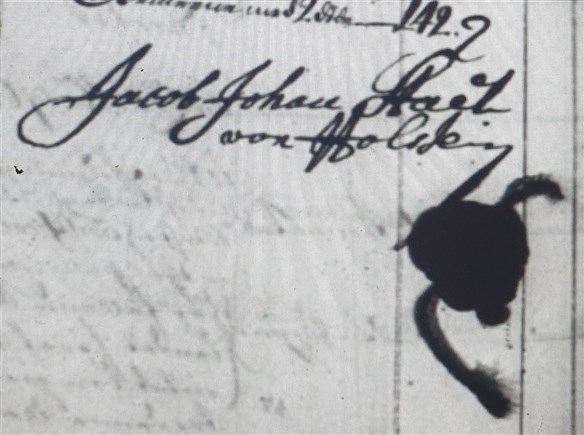 142.
Jacob Johan Staël
von Holstein